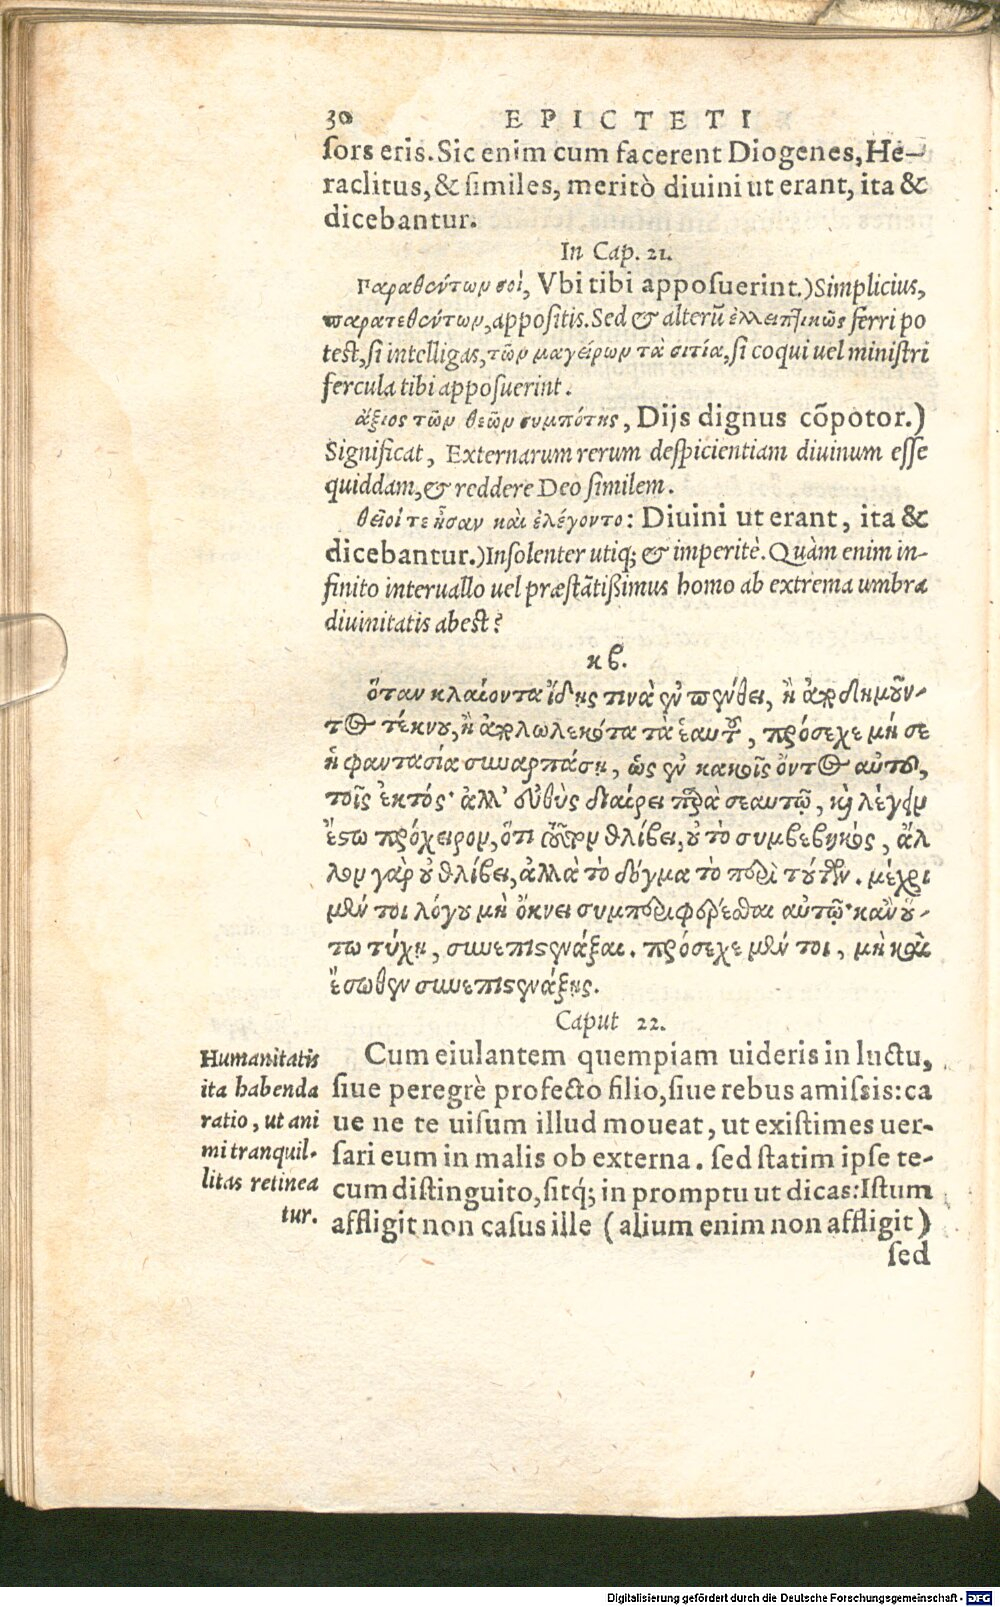 30 EPICTETI
sors eris. Sic enim cum facerent Diogenes, He-
raclitus, & similes, meritò diuini ut erant, ita &
dicebantur.
In Cap. 21.
Παραθέντων σοί, Vbi tibi apposuerint.) Simplicius,
παρατεθέντων, appositis. Sed & alterũ ἐλλειπτικῶς ferri po
test, si intelligas, τῶν μαγείρων τὰ σιτία, si coqui uel ministri
fercula tibi apposuerint.
ἄξιος τῶν θεῶν συμπότης, Dijs dignus cõpotor.)
Significat, Externarum rerum despicientiam diuinum esse
quiddam, & reddere Deo similem.
θεῖοί τε ἦσαν καὶ ἐλέγοντο: Diuini ut erant, ita &
dicebantur.) Insolenter utiq; & imperitè. Quàm enim in-
finito interuallo uel præstãtißimus homo ab extrema umbra
diuinitatis abest?
κβ.
ὅταν κλαίοντα ἴδῃς τινὰ ἐν πένθει, ἢ ἀποδημοῦν-
τος τέκνου, ἢ ἀπολωλεκότα τὰ ἑαυτοῦ, πρόσεχε μή σε
ἡ φαντασία συναρπάσῃ, ὡς ἐν κακοῖς ὄντος αὐτοῦ,
τοῖς ἐκτός· ἀλλ' εὐθὺς διαίρει παρὰ σεαυτῷ, καὶ λέγειν
ἔστω πρόχειρον, ὅτι τοῦτον θλίβει, οὐ τὸ συμβεβηκός, ἄλ
λον γὰρ οὐ θλίβει, ἀλλὰ τὸ δόγμα τὸ περὶ τούτων. μέχρι
μέν τοι λόγου μὴ ὄκνει συμπεριφέρεσθαι αὐτῷ· κἂν οὕ-
τω τύχῃ, συνεπιστενάξαι. πρόσεχε μέν τοι, μὴ καὶ
ἔσωθεν συνεπιστενάξῃς.
Caput 22.
Cum eiulantem quempiam uideris in luctu,
siue peregrè profecto filio, siue rebus amissis: ca
ue ne te uisum illud moueat, ut existimes uer-
sari eum in malis ob externa. sed statim ipse te-
cum distinguito, sitq́; in promptu ut dicas: Istum
affligit non casus ille (alium enim non affligit)
sed
Humanitatis
ita habenda
ratio, ut ani
mi tranquil-
litas retinea
tur.
Digitalisierung gefördert durch die Deutsche Forschungsgemeinschaft - DFG